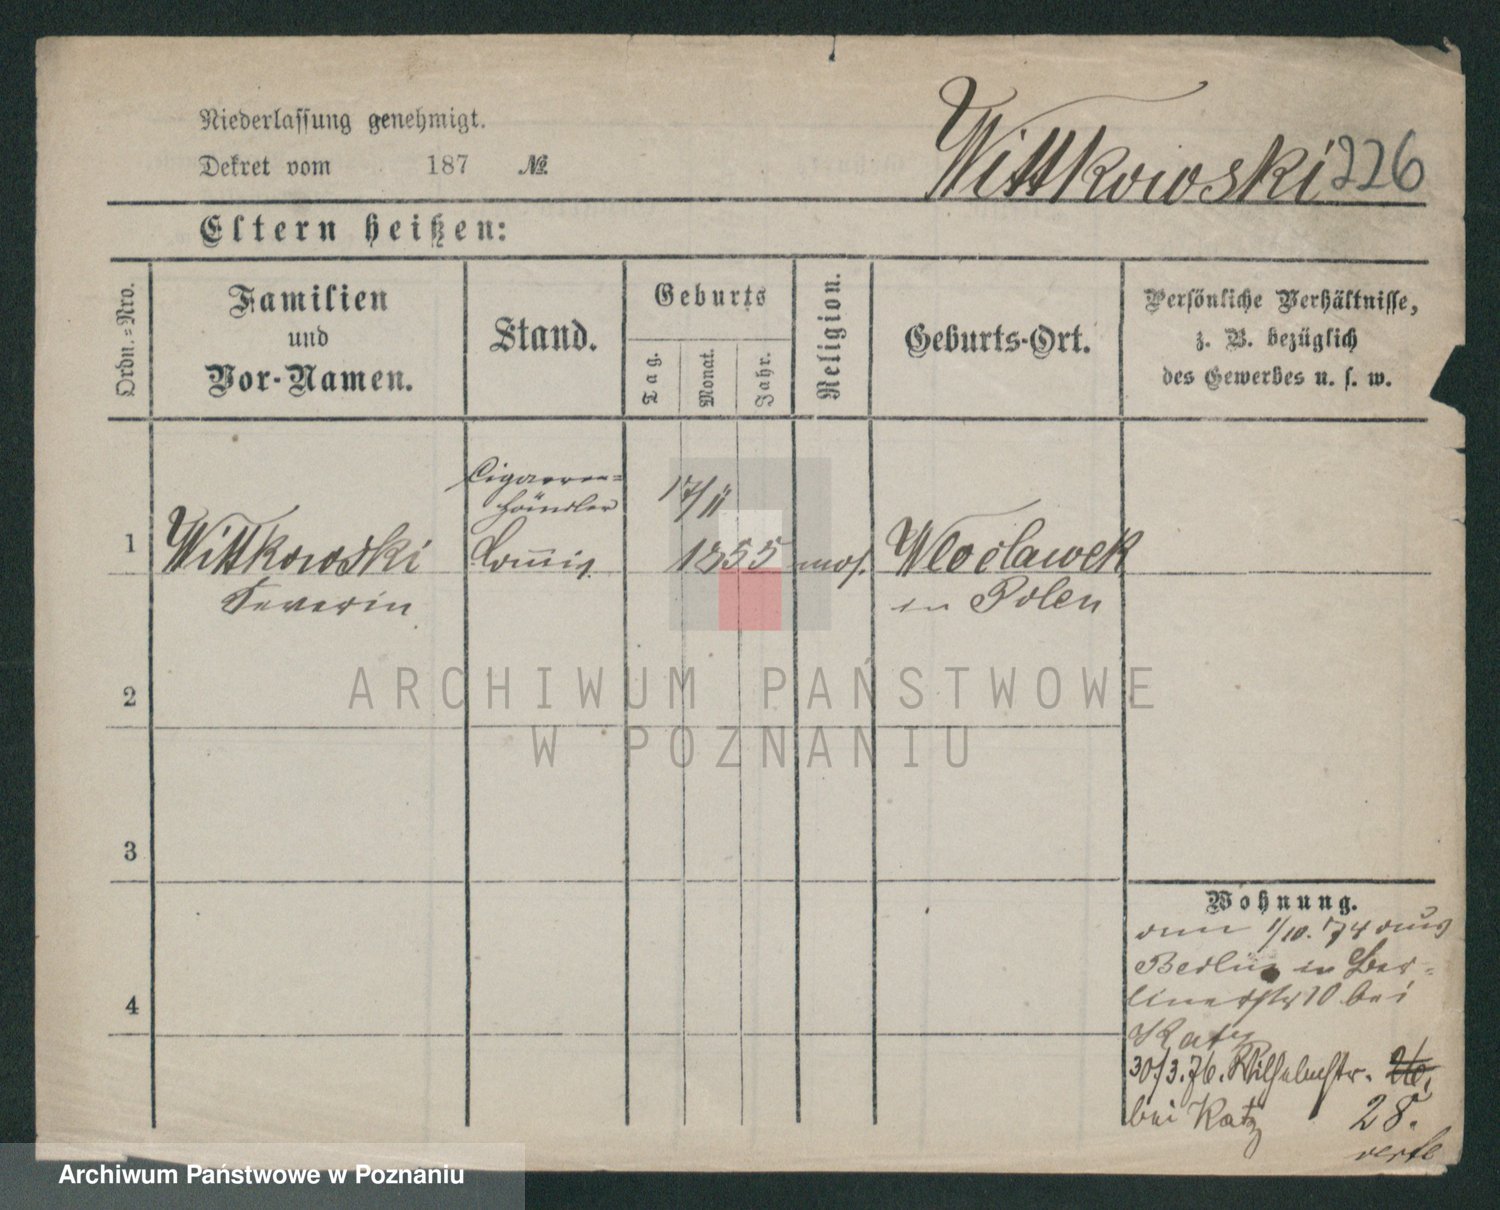 Niederlassung genehmigt.
Dekret vom 187 №
Wittkowski 226
Eltern heißen:
Ordn.-Nro.
Familien
und
Vor-Namen.
Stand.
Geburts
Tag.
Monat.
Jahr.
Religion.
Geburts-Ort.
Persönliche Verhältnisse,
z. B. bezüglich
des Gewerbes u. s. w.
1
Wittkowski
Severin
Cigarren=
händler
Com̅is
17/11
1855
mos.
Wloclawek
in Polen
2
3
4
Wohnung.
1/10. 74 aus
Berlin in Ber=
linerstr 10 bei
Katz
30/3.76. Wilhelmstr. 26,
bei Katz 28.
verte
ARCHIWUM PAŃSTWOWE
W POZNANIU
Archiwum Państwowe w Poznaniu